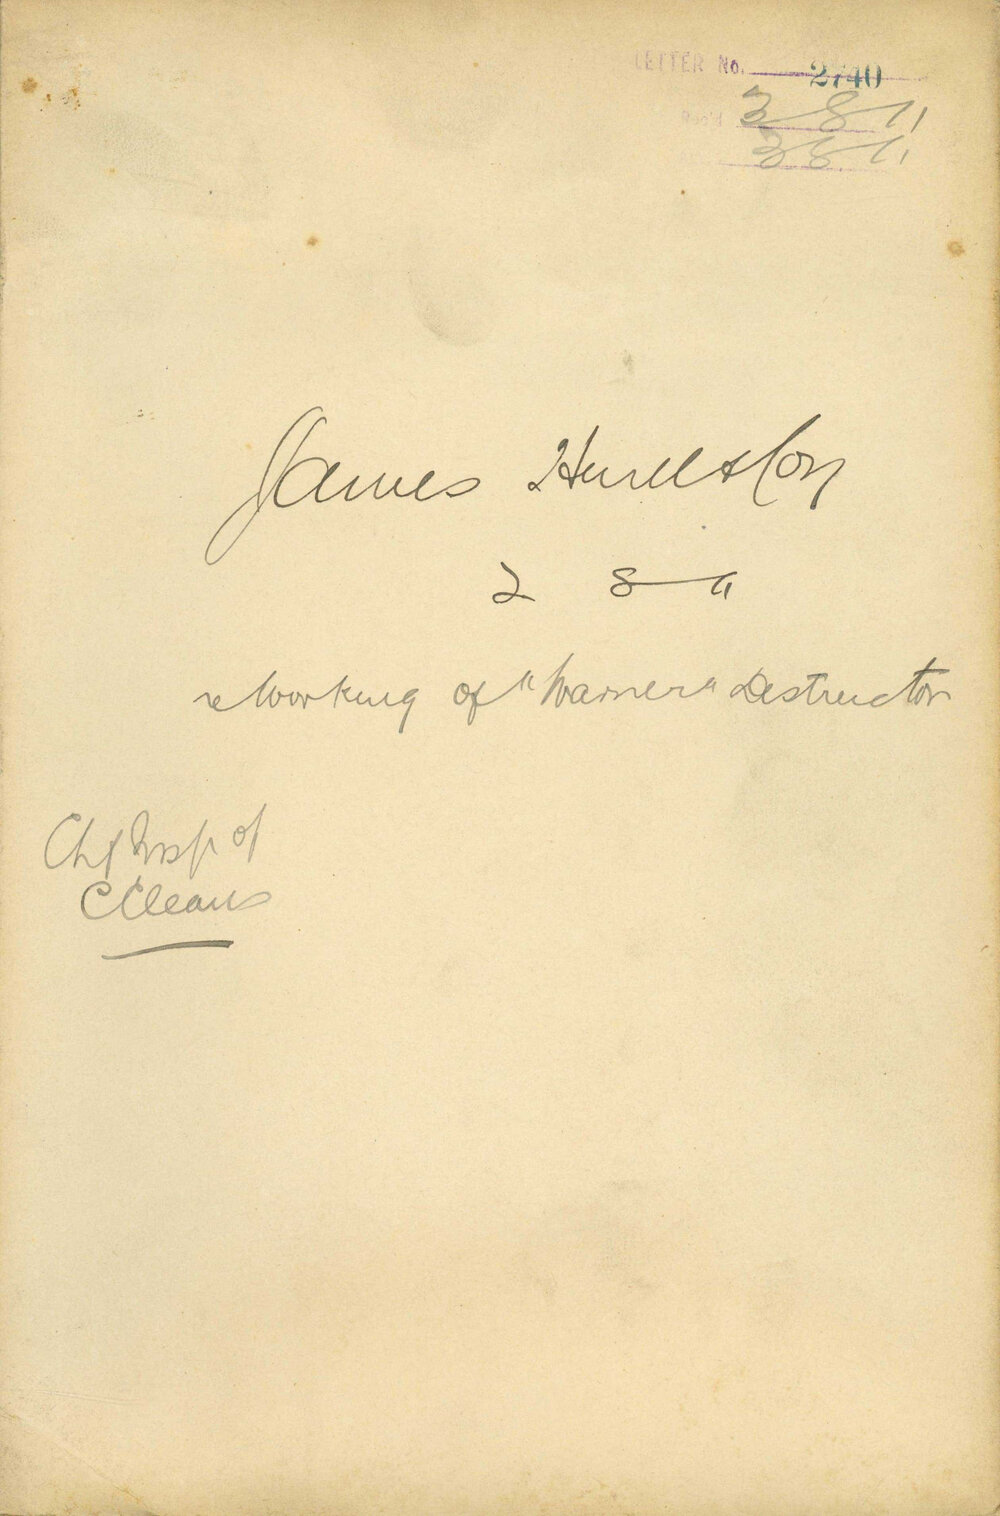 LETTER No. 2740
Rec'd 3 8 11
3 8 11
James Hurll & Coy
2 8 11
re Working of "Warner" Destructor
Chf Insp of
C Cleans